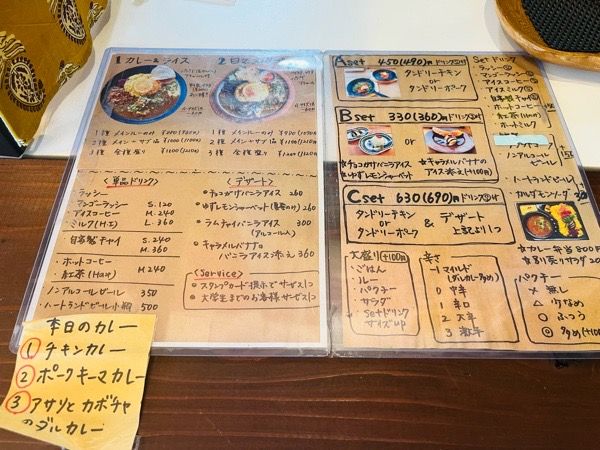 1 カレー&ライス
1種 メインルーのみ
2種 メイン+サブ1品 ¥1000
3種 全種盛り ¥1100
2
1種 メインルーのみ
2種 メイン+サブ1品
3種 全種盛り
<単品ドリンク>
ラッシー
マンゴーラッシー S.120
アイスコーヒー M.240
ミルク(H.I) L.360
自家製チャイ S.240
M.360
・ホットコーヒー
・紅茶(Hot) M240
ノンアルコールビール 350
ハートランドビール小瓶 500
<デザート>
チョコがけバニラアイス 260
ゆずレモンシャーベット 260
ラムチャイバニラアイス 300
(アルコール入)
キャラメルバナナの
バニラアイス添え 360
<Service>
スタンプカード提示でサービス1つ
大学生までのお客様サービス1つ
本日のカレー
① チキンカレー
② ポークキーマカレー
③ アサリとカボチャ
のダルカレー
Aset 450(490)円 ドリンク付
タンドリーチキン
or
タンドリーポーク
Bset 330(360)円 ドリンク付
or
☆チョコがけバニラアイス
☆ゆずレモンシャーベット
☆キャラメルバナナの
アイス添え(+100円)
Cset 630(690)円 ドリンク付
タンドリーチキン
or
タンドリーポーク
&
デザート
上記より1つ
大盛り +100円
・ごはん
・ルー
・パクチー
・サラダ
・Setドリンク
サイズup
辛さ
-1 マイルド
(ダルカレー
0 中辛
1 辛口
2 大辛
3 激辛
Setドリンク
ラッシー
マンゴーラッシー
アイスコーヒー
アイスミルク
自家製チャイ
ホットコーヒー
紅茶(Hot)
ホットミルク
ノンアルコール
ビール
ハートランドビール
☆カレー弁当 800円
パクチー
× 無し
△ 少なめ
○ ふつう
◎ 多め